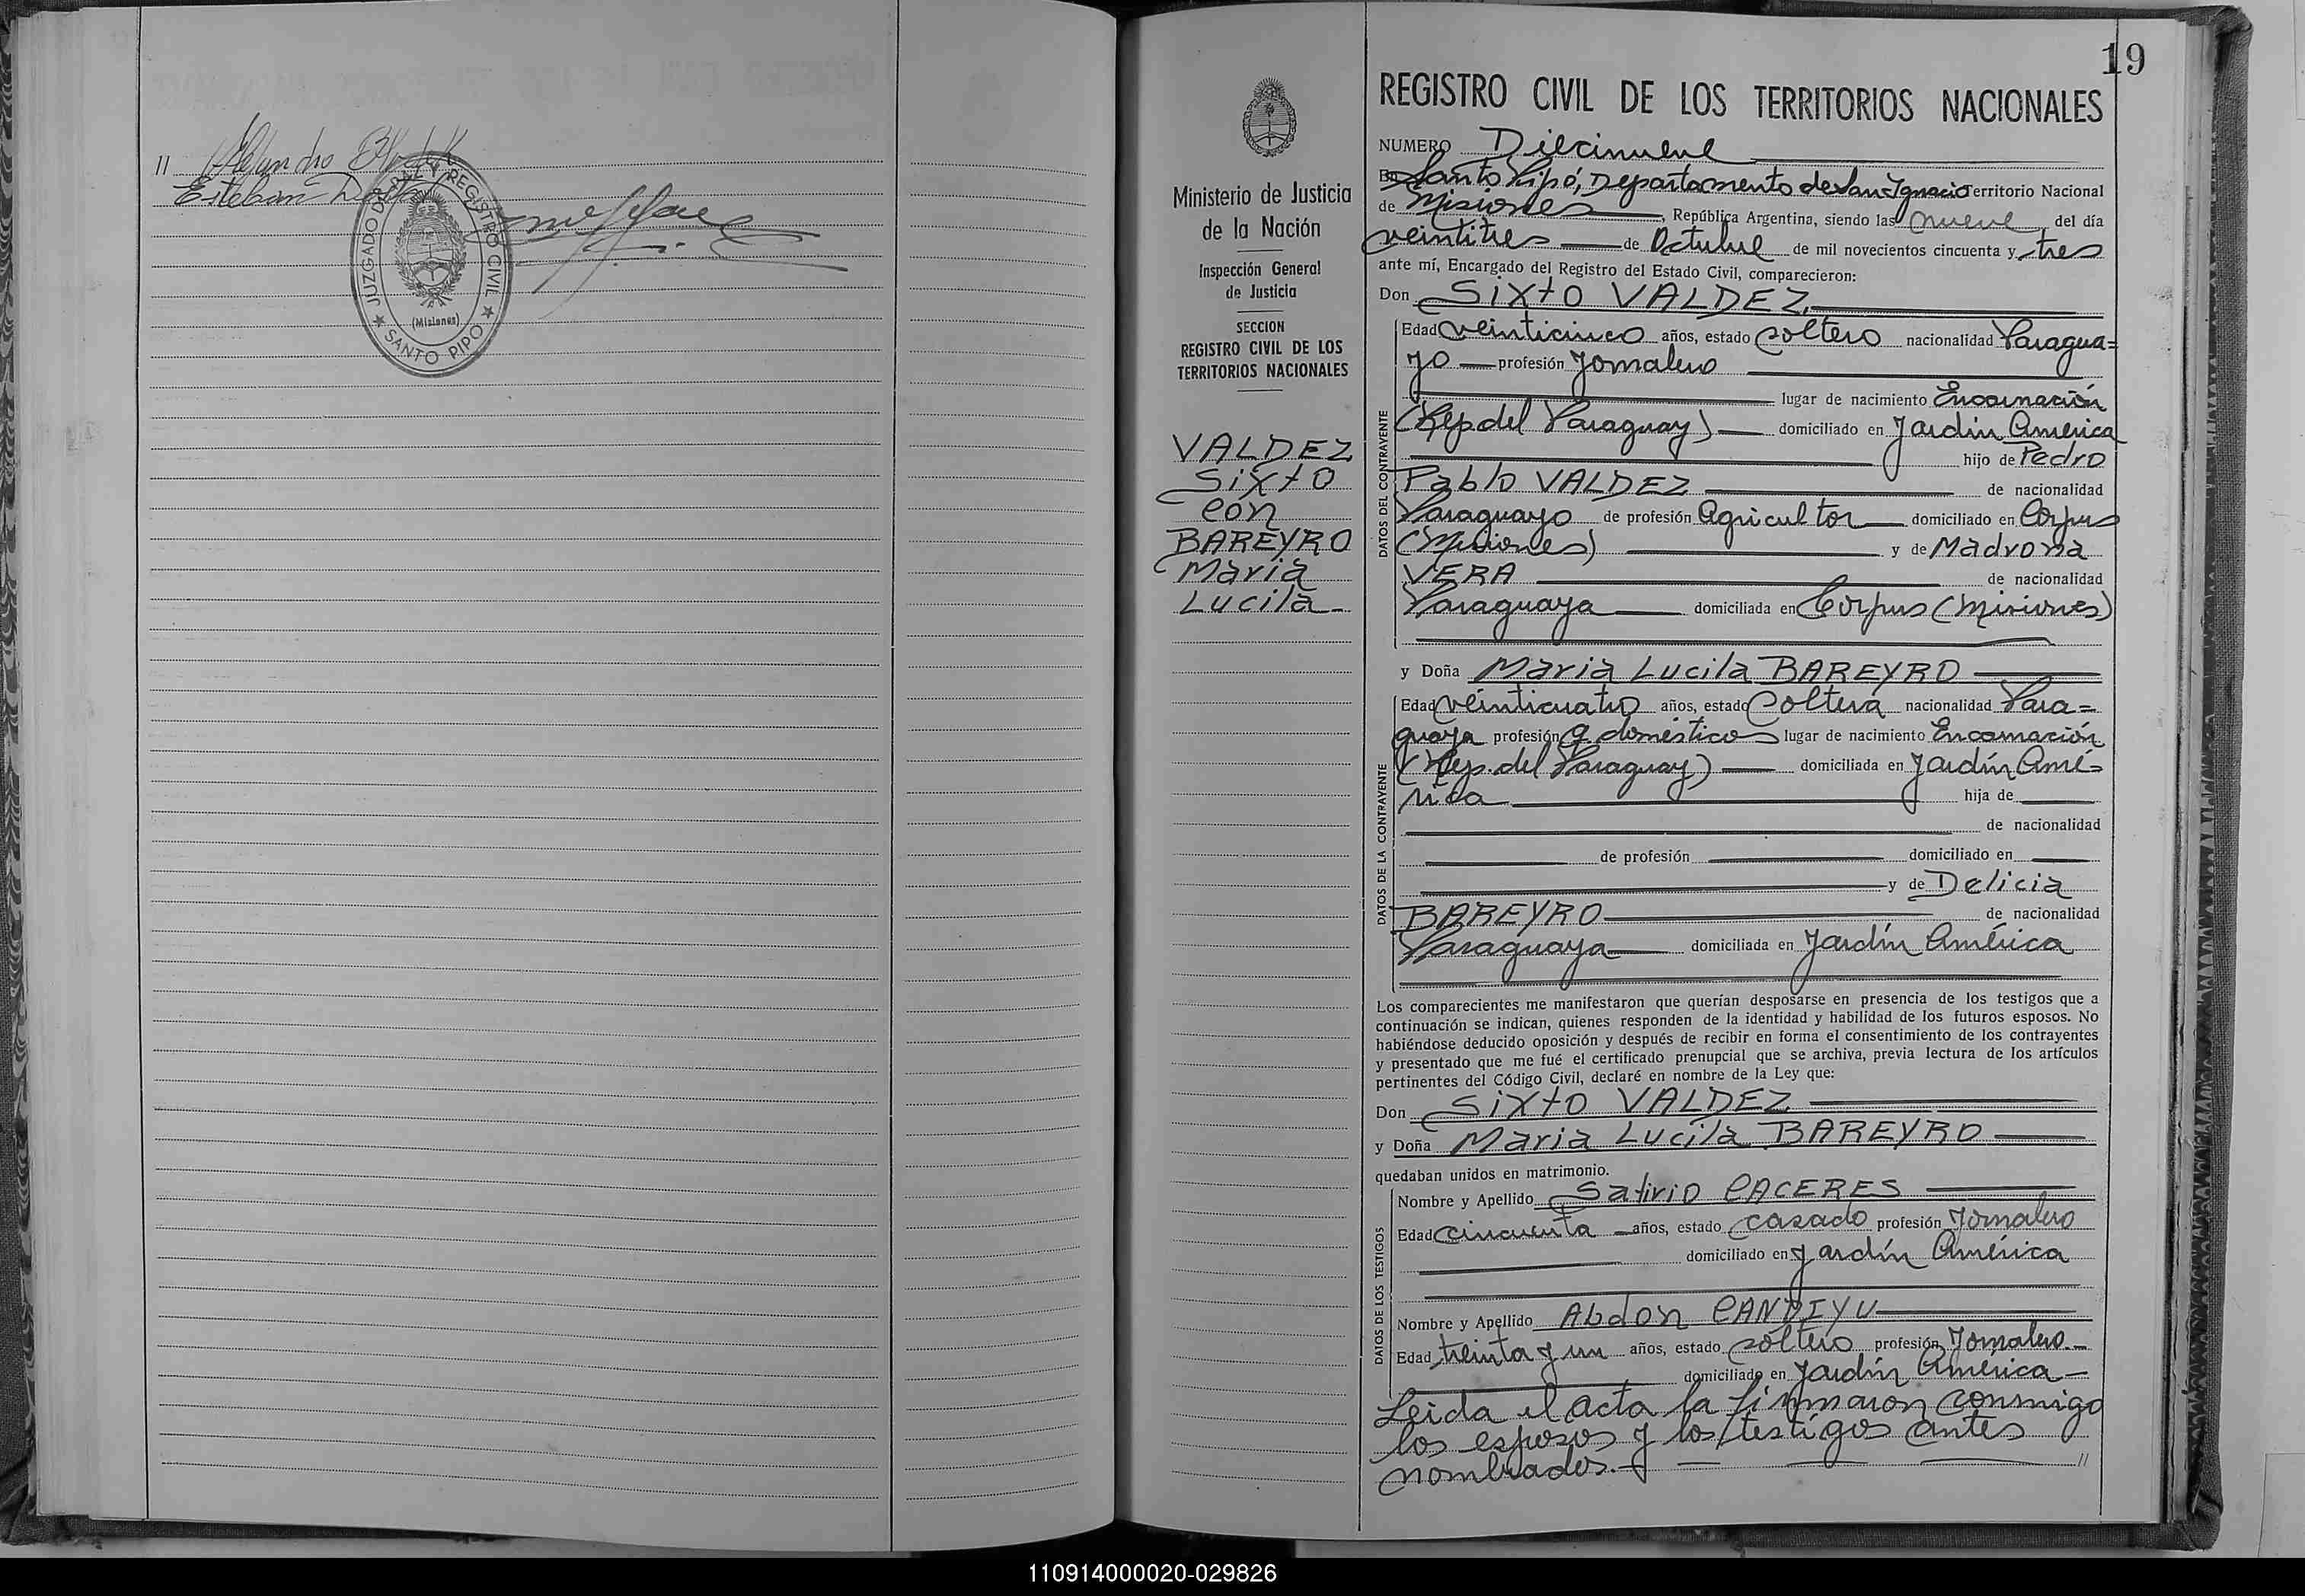 11
Esteban
JUZGADO DE PAZ Y REGISTRO CIVIL
(Misiones)
SANTO PIPO
19
Ministerio de Justicia
de la Nación
Inspección General
de Justicia
SECCION
REGISTRO CIVIL DE LOS
TERRITORIOS NACIONALES
VALDEZ
Sixto
con
BAREYRO
Maria
Lucila
REGISTRO CIVIL DE LOS TERRITORIOS NACIONALES
NUMERO Diecinueve
En Santo Pipó, Departamento de San Ignacio Territorio Nacional
de Misiones, República Argentina, siendo las nueve del día
veintitres de Octubre de mil novecientos cincuenta y tres
ante mí, Encargado del Registro del Estado Civil, comparecieron:
Don Sixto VALDEZ
Edad veinticinco años, estado soltero nacionalidad Paragua=
yo profesión Jornalero
lugar de nacimiento Encarnación
(Rep. del Paraguay) domiciliado en Jardín América
hijo de Pedro
Pablo VALDEZ de nacionalidad
Paraguayo de profesión Agricultor domiciliado en Corpus
(Misiones) y de Madrona
VERA de nacionalidad
Paraguaya domiciliada en Corpus (Misiones)
DATOS DEL CONTRAYENTE
y Doña Maria Lucila BAREYRO
Edad veinticuatro años, estado Soltera nacionalidad Para=
guaya profesión q. domésticos lugar de nacimiento Encarnación
(Rep. del Paraguay) domiciliada en Jardín Amé=
rica hija de
de nacionalidad
de profesión domiciliado en
y de Delicia
BAREYRO de nacionalidad
Paraguaya domiciliada en Jardín América
DATOS DE LA CONTRAYENTE
Los comparecientes me manifestaron que querían desposarse en presencia de los testigos que a
continuación se indican, quienes responden de la identidad y habilidad de los futuros esposos. No
habiéndose deducido oposición y después de recibir en forma el consentimiento de los contrayentes
y presentado que me fué el certificado prenupcial que se archiva, previa lectura de los artículos
pertinentes del Código Civil, declaré en nombre de la Ley que:
Don Sixto VALDEZ
y Doña Maria Lucila BAREYRO
quedaban unidos en matrimonio.
Nombre y Apellido Satirio CACERES
Edad cincuenta años, estado casado profesión Jornalero
domiciliado en Jardín América
Nombre y Apellido Abdon CANDIYU
Edad treinta y un años, estado soltero profesión Jornalero.
domiciliado en Jardín América
DATOS DE LOS TESTIGOS
Leida el acta la firmaron conmigo
los esposos y los testigos antes
nombrados. //
110914000020-029826